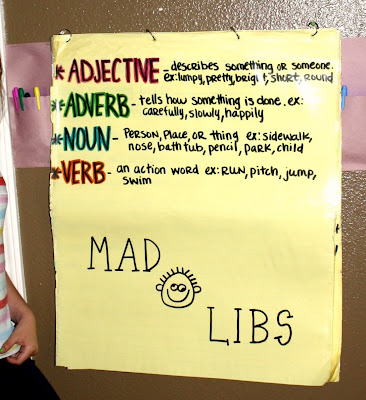 * ADJECTIVE - describes something or someone.
ex: lumpy, pretty, bright, short, round
* ADVERB - tells how something is done. ex:
carefully, slowly, happily
* NOUN - Person, Place, or thing ex: sidewalk,
nose, bath tub, pencil, park, child
* VERB - an action word ex: RUN, pitch, jump,
swim
MAD
LIBS